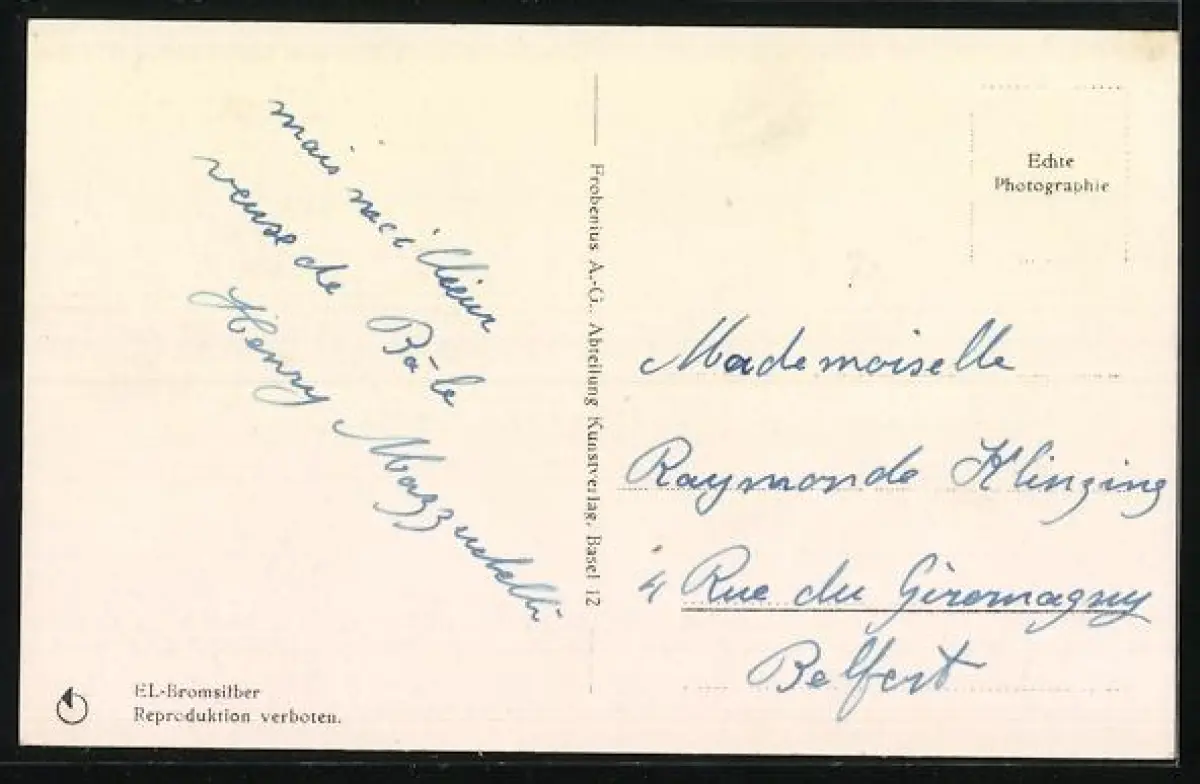 mais meilleur
veuse de Bâle
Henry Mazzuchelli
Frobenius A.-G., Abteilung Kunstverlag, Basel 12
Echte
Photographie
Mademoiselle
Raymonde Klinzing
4 Rue du Giromagny
Belfort
EL-Bromsilber
Reproduktion verboten.